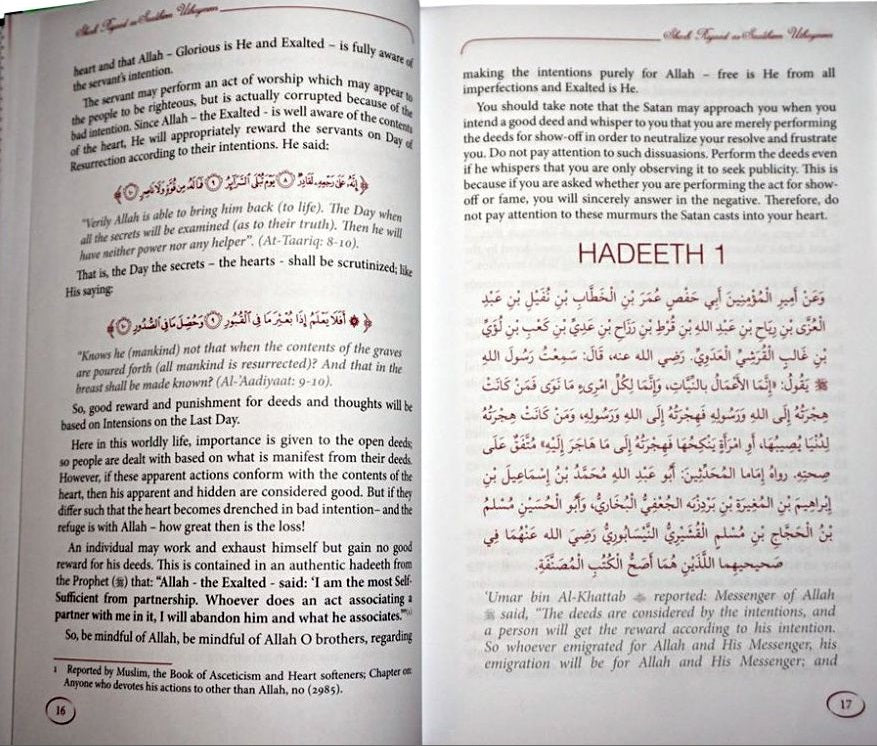 Sharh Riyaad as-Saaliheen Uthaymeen
heart and that Allah – Glorious is He and Exalted – is fully aware of
the servant's intention.
The servant may perform an act of worship which may appear to
the people to be righteous, but is actually corrupted because of the
bad intention. Since Allah – the Exalted - is well aware of the contents
of the heart, He will appropriately reward the servants on Day of
Resurrection according to their intentions. He said:
﴿إِنَّهُۥ عَلَىٰ رَجْعِهِۦ لَقَادِرٌ ٨ يَوْمَ تُبْلَى ٱلسَّرَآئِرُ ٩ فَمَا لَهُۥ مِن قُوَّةٍ وَلَا نَاصِرٍ ١٠﴾
"Verily Allah is able to bring him back (to life). The Day when
all the secrets will be examined (as to their truth). Then he will
have neither power nor any helper". (At-Taariq: 8-10).
That is, the Day the secrets – the hearts - shall be scrutinized; like
His saying:
﴿۞ أَفَلَا يَعْلَمُ إِذَا بُعْثِرَ مَا فِى ٱلْقُبُورِ ٩ وَحُصِّلَ مَا فِى ٱلصُّدُورِ ١٠﴾
"Knows he (mankind) not that when the contents of the graves
are poured forth (all mankind is resurrected)? And that in the
breast shall be made known? (Al-'Aadiyaat: 9-10).
So, good reward and punishment for deeds and thoughts will be
based on Intensions on the Last Day.
Here in this worldly life, importance is given to the open deeds;
so people are dealt with based on what is manifest from their deeds.
However, if these apparent actions conform with the contents of the
heart, then his apparent and hidden are considered good. But if they
differ such that the heart becomes drenched in bad intention– and the
refuge is with Allah – how great then is the loss!
An individual may work and exhaust himself but gain no good
reward for his deeds. This is contained in an authentic hadeeth from
the Prophet (ﷺ) that: "Allah - the Exalted - said: 'I am the most Self-
Sufficient from partnership. Whoever does an act associating a
partner with me in it, I will abandon him and what he associates.'"(1)
So, be mindful of Allah, be mindful of Allah O brothers, regarding
1 Reported by Muslim, the Book of Asceticism and Heart softeners; Chapter on:
Anyone who devotes his actions to other than Allah, no (2985).
16
Sharh Riyaad as-Saaliheen Uthaymeen
making the intentions purely for Allah – free is He from all
imperfections and Exalted is He.
You should take note that the Satan may approach you when you
intend a good deed and whisper to you that you are merely performing
the deeds for show-off in order to neutralize your resolve and frustrate
you. Do not pay attention to such dissuasions. Perform the deeds even
if he whispers that you are only observing it to seek publicity. This is
because if you are asked whether you are performing the act for show-
off or fame, you will sincerely answer in the negative. Therefore, do
not pay attention to these murmurs the Satan casts into your heart.
HADEETH 1
وَعَنْ أَمِيرِ الْمُؤْمِنِينَ أَبِي حَفْصٍ عُمَرَ بْنِ الْخَطَّابِ بْنِ نُفَيْلِ بْنِ عَبْدِ
الْعُزَّى بْنِ رِيَاحِ بْنِ عَبْدِ اللهِ بْنِ قُرْطِ بْنِ رَزَاحِ بْنِ عَدِيِّ بْنِ كَعْبِ بْنِ لُؤَيِّ
بْنِ غَالِبٍ الْقُرَشِيِّ الْعَدَوِيِّ. رَضِيَ الله عنه، قَالَ: سَمِعْتُ رَسُولَ اللهِ
ﷺ يَقُولُ: «إِنَّمَا الأَعْمَالُ بالنِّيَّاتِ، وَإِنَّمَا لِكُلِّ امْرِىءٍ مَا نَوَى فَمَنْ كَانَتْ
هِجْرَتُهُ إِلَى اللهِ وَرَسُولِهِ فَهِجْرَتُهُ إِلَى اللهِ وَرَسُولِهِ، وَمَنْ كَانَتْ هِجْرَتُهُ
لِدُنْيَا يُصِيبُهَا، أَوِ امْرَأَةٍ يَنْكِحُهَا فَهِجْرَتُهُ إِلَى مَا هَاجَرَ إِلَيْهِ» مُتَّفَقٌ عَلَى
صِحَّتِهِ. رواهُ إِمَامَا الْمُحَدِّثِينَ: أَبُو عَبْدِ اللهِ مُحَمَّدُ بْنُ إِسْمَاعِيلَ بْنِ
إِبْرَاهِيمَ بْنِ الْمُغِيرَةِ بْنِ بَرْدِزْبَه الْجُعْفِيُّ الْبُخَارِيُّ، وَأَبُو الْحُسَيْنِ مُسْلِمُ
بْنُ الْحَجَّاجِ بْنِ مُسْلِمٍ الْقُشَيْرِيُّ النَّيْسَابُورِيُّ رَضِيَ الله عَنْهُمَا فِي
صَحِيحَيْهِما اللَّذَيْنِ هُمَا أَصَحُّ الْكُتُبِ الْمُصَنَّفَةِ.
'Umar bin Al-Khattab ﷺ reported: Messenger of Allah
ﷺ said, "The deeds are considered by the intentions, and
a person will get the reward according to his intention.
So whoever emigrated for Allah and His Messenger, his
emigration will be for Allah and His Messenger; and
17